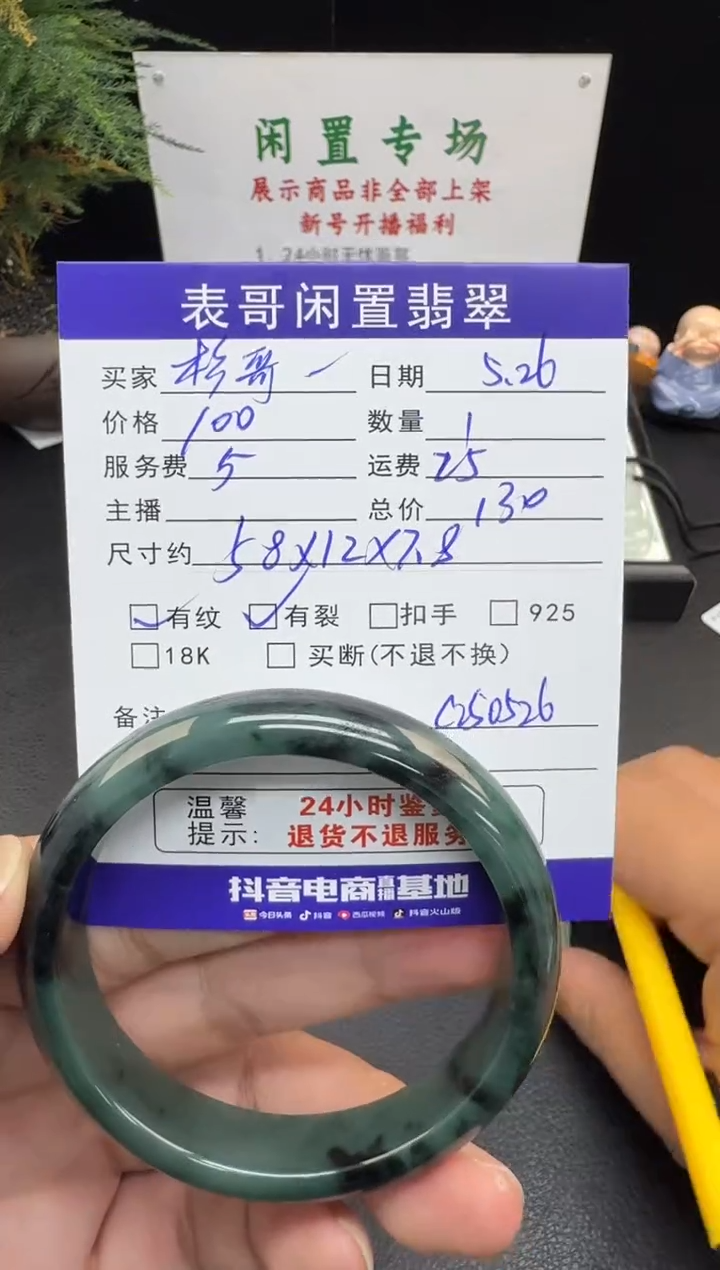 闲置专场
展示商品非全部上架
新号开播福利
1、24小时无忧鉴赏
表哥闲置翡翠
买家 杉哥 日期 5.26
价格 100 数量 1
服务费 5 运费 25
主播 总价 130
尺寸约 58X12X7.8
有纹 有裂 扣手 925
18K 买断(不退不换)
备注 C250526
温馨 24小时鉴赏
提示: 退货不退服务
抖音电商直播基地
今日头条 抖音 西瓜视频 抖音火山版